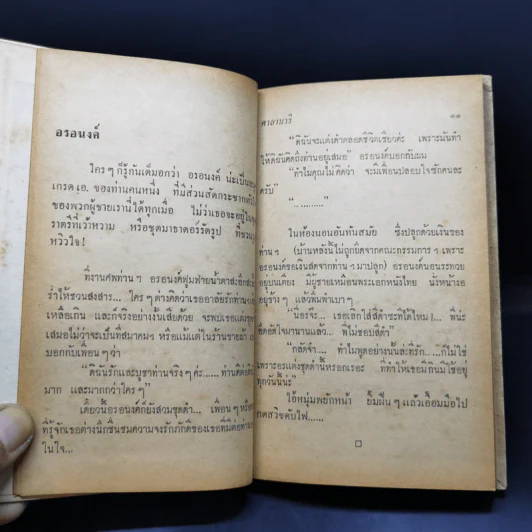 อรอนงค์
ใครๆ ก็รู้กันเต็มอกว่า อรอนงค์ น่ะเป็น
เกรด เอ. ของท่านคนหนึ่ง ที่มีส่วนสัดกระชาก
ของพวกผู้ชายเรานี่ได้ทุกเมื่อ ไม่ว่าเธอจะอยู่ใน
ราตรีที่เว้าหวาม หรือชุดมาธาดอร์รัดรูป ที่
หวิวใจ!
ที่งานศพท่านๆ อรอนงค์ฟูมฟายน้ำตา
ร่ำไห้ชวนสงสาร... ใครๆ ต่างคิดว่าเธออาลัยรักท่าน
เหลือเกิน และก็จริงอย่างนั้นเสียด้วย จะพบเธอ
เสมอไม่ว่าจะเป็นที่สมาคมฯ หรือแม้แต่ในร้านขาย
บอกกับเพื่อนๆ ว่า
"ดิฉันรักและบูชาท่านจริงๆ ค่ะ..... ท่านคิด
มาก และมากกว่าใครๆ"
เดี๋ยวนี้อรอนงค์ก็ยังสวมชุดดำ... เพื่อนๆ
ที่รู้จักเธอต่างนึกชื่นชมความจงรักภักดีของเธอที่มีต่อท่าน
ในใจ...
ศาลานารี
๑๑
"ดิฉันจะแต่งดำตลอดชีวิตเชียวค่ะ เพราะมันทำ
ให้ดิฉันคิดถึงท่านอยู่เสมอ" อรอนงค์บอกกับผม
"ทำไมคุณไม่คิดว่า จะมีเพื่อนปลอบใจซักคนละ
ครับ"
"..........."
ในห้องนอนอันทันสมัย ซึ่งปลูกด้วยเงินของ
ท่านๆ (บ้านหลังนี้ไม่ถูกยึดจากคณะกรรมการฯ เพราะ
อรอนงค์ขอเงินสดจากท่านๆ มาปลูก) อรอนงค์นอนระทวย
อยู่บนเตียง มีผู้ชายเหมือนพระเอกหนังไทย นั่งหน้างอ
อยู่ข้างๆ แล้วพึมพำเบาๆ
"นี่อรจ๊ะ... เธอเลิกใส่สีดำซะทีได้ไหม! พี่น่ะ
อึดอัดใจมานานแล้ว... พี่ไม่ชอบสีดำ"
"กลัดจ๋า.... ทำไมพูดอย่างนั้นละที่รัก.....ก็ไม่ใช่
เพราะอรแต่งชุดดำนี้หรอกเรอะ ที่ทำให้เธอมีกินมีใช้อยู่
ทุกวันนี้น่ะ"
ไอ้หนุ่มพยักหน้า ยิ้มฝืนๆ แล้วเอื้อมมือไป
กดสวิชดับไฟ......